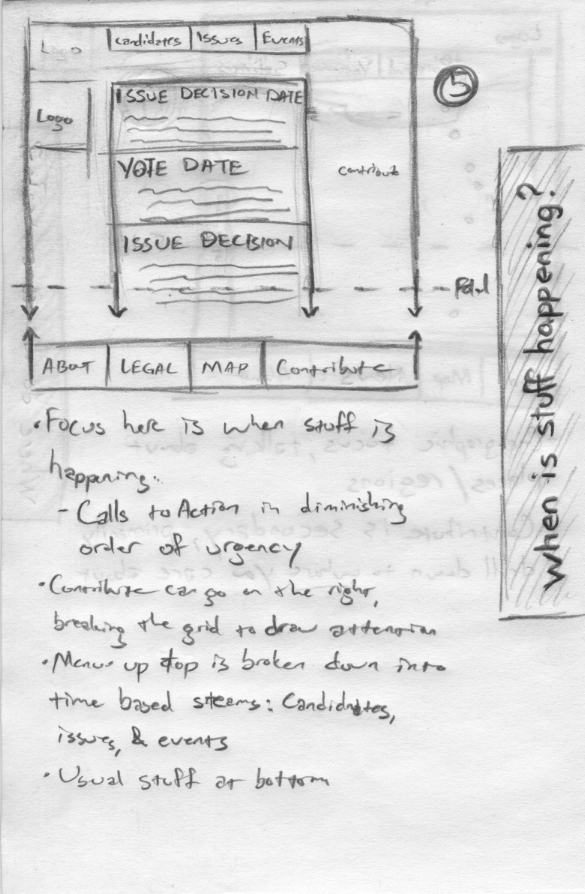 Logo
Candidates
Issues
Events
5
Logo
ISSUE DECISION DATE
VOTE DATE
contribute
ISSUE DECISION
Fold
ABOUT
LEGAL
MAP
Contribute
When is stuff happening?
• Focus here is when stuff is
happening.
- Calls to Action in diminishing
order of urgency
• Contribute can go on the right,
breaking the grid to draw attention
• Menus up top is broken down into
time based steems: Candidates,
issues, & events
• Usual stuff at bottom